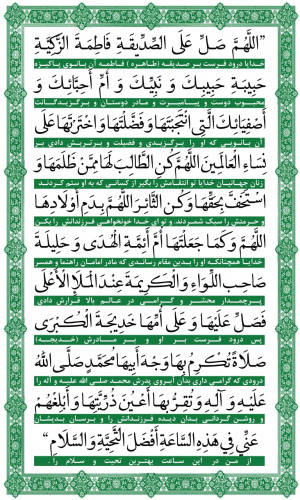 ”اَللّٰهُمَّ صَلِّ عَلَى الصِّدّيقَةِ فاطِمَةَ الزَّكِيَّةِ
خدایا درود فرست بر صدیقه (طاهره) فاطمه آن بانوی پاکیزه
حَبيبَةِ حَبيبِكَ وَ نَبِيِّكَ وَ اُمِّ اَحِبّائِكَ وَ
محبوب دوست و پیامبرت و مادر دوستان و برگزیدگانت
اَصْفِيائِكَ الَّتِى انْتَجَبْتَها وَ فَضَّلْتَها وَ اخْتَرْتَها عَلى
آن بانویی که او را برگزیدی و فضیلت و برتریش دادی بر
نِساءِ الْعالَمينَ اَللّٰهُمَّ كُنِ الطّالِبَ لَها مِمَّنْ ظَلَمَها وَ
زنان جهانیان خدایا تو انتقامش را بگیر از کسانی که به او ستم کردند
اسْتَخَفَّ بِحَقِّها وَ كُنِ الثّائِرَ اَللّٰهُمَّ بِدَمِ اَوْلادِها
و حرمتش را سبک شمردند. و تو ای خدا خونخواهی فرزندانش را بکن
اَللّٰهُمَّ وَ كَما جَعَلْتَها اُمَّ اَئِمَّةِ الْهُدى وَ حَليلَةَ
خدایا همچنانکه او را بدین مقام رساندی که مادر امامان راهنما و همسر
صاحِبِ اللِّواءِ وَ الْكَريمَةَ عِنْدَ الْمَلَاِ الْاَعْلى
پرچمدار محشر و گرامی در عالم بالا قرارش دادی
فَصَلِّ عَلَيْها وَ عَلى اُمِّها خَديجَةَ الْكُبْرى
پس درود فرست بر او و بر مادرش (خدیجه)
صَلاةً تُكْرِمُ بِها وَجْهَ اَبيها مُحَمَّدٍ صَلَّى اللهُ
درودی که گرامی داری بدان آبروی پدرش محمد صلی الله علیه و آله را
عَلَيْهِ وَ آلِهِ وَ تُقِرُّ بِها اَعْيُنَ ذُرِّيَّتِها وَ اَبْلِغْهُمْ
و روشن گردانی بدان دیده فرزندانش را و برسان بدیشان
عَنّى فى هذِهِ السّاعَةِ اَفْضَلَ التَّحِيَّةِ وَ السَّلامِ“
از من در این ساعت بهترین تحیت و سلام را.